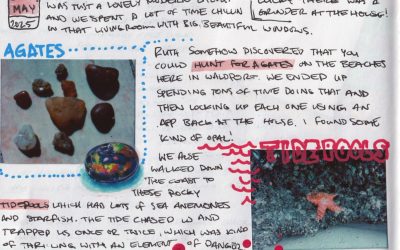 WAS JUST A LOVELY MODERN
GRINDER AT THE HOUSE!
MAY
2025
AND WE SPENT A LOT OF TIME CHILLIN
IN THAT LIVING ROOM WITH BIG, BEAUTIFUL
WINDOWS.
AGATES
RUTH SOMEHOW DISCOVERED THAT YOU
COULD HUNT FOR AGATES ON THE BEACHES
HERE IN WALDPORT. WE ENDED UP
SPENDING TONS OF TIME DOING THAT AND
THEN LOOKING UP EACH ONE USING AN
APP BACK AT THE HOUSE. I FOUND SOME
KIND OF OPAL!
TIDEPOOLS
WE ALSO
WALKED DOWN
THE COAST TO
THESE ROCKY
TIDEPOOLS WHICH HAD LOTS OF SEA ANEMONES
AND STARFISH. THE TIDE CHASED US AND
TRAPPED US ONCE OR TWICE, WHICH WAS KIND
OF THRILLING WITH AN ELEMENT OF DANGER